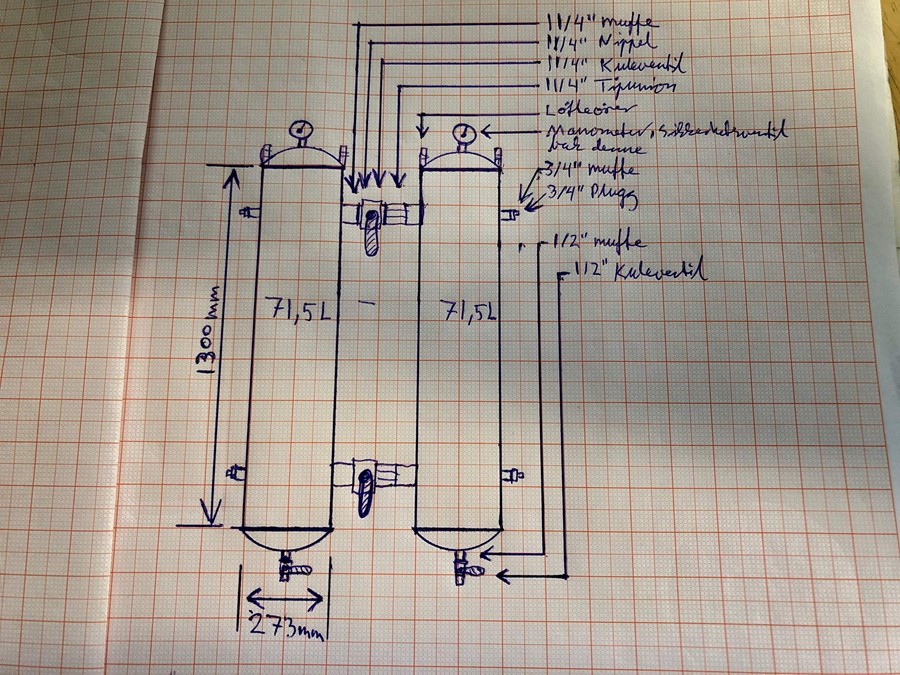 1 1/4" muffe
1 1/4" Nippel
1 1/4" Kuleventil
1 1/4" Tipunion
Løfteører
Manometer, sikkerhetsventil
bak denne
3/4" muffe
3/4" Plugg
1/2" muffe
1/2" Kuleventil
71,5L
71,5L
1300mm
273mm